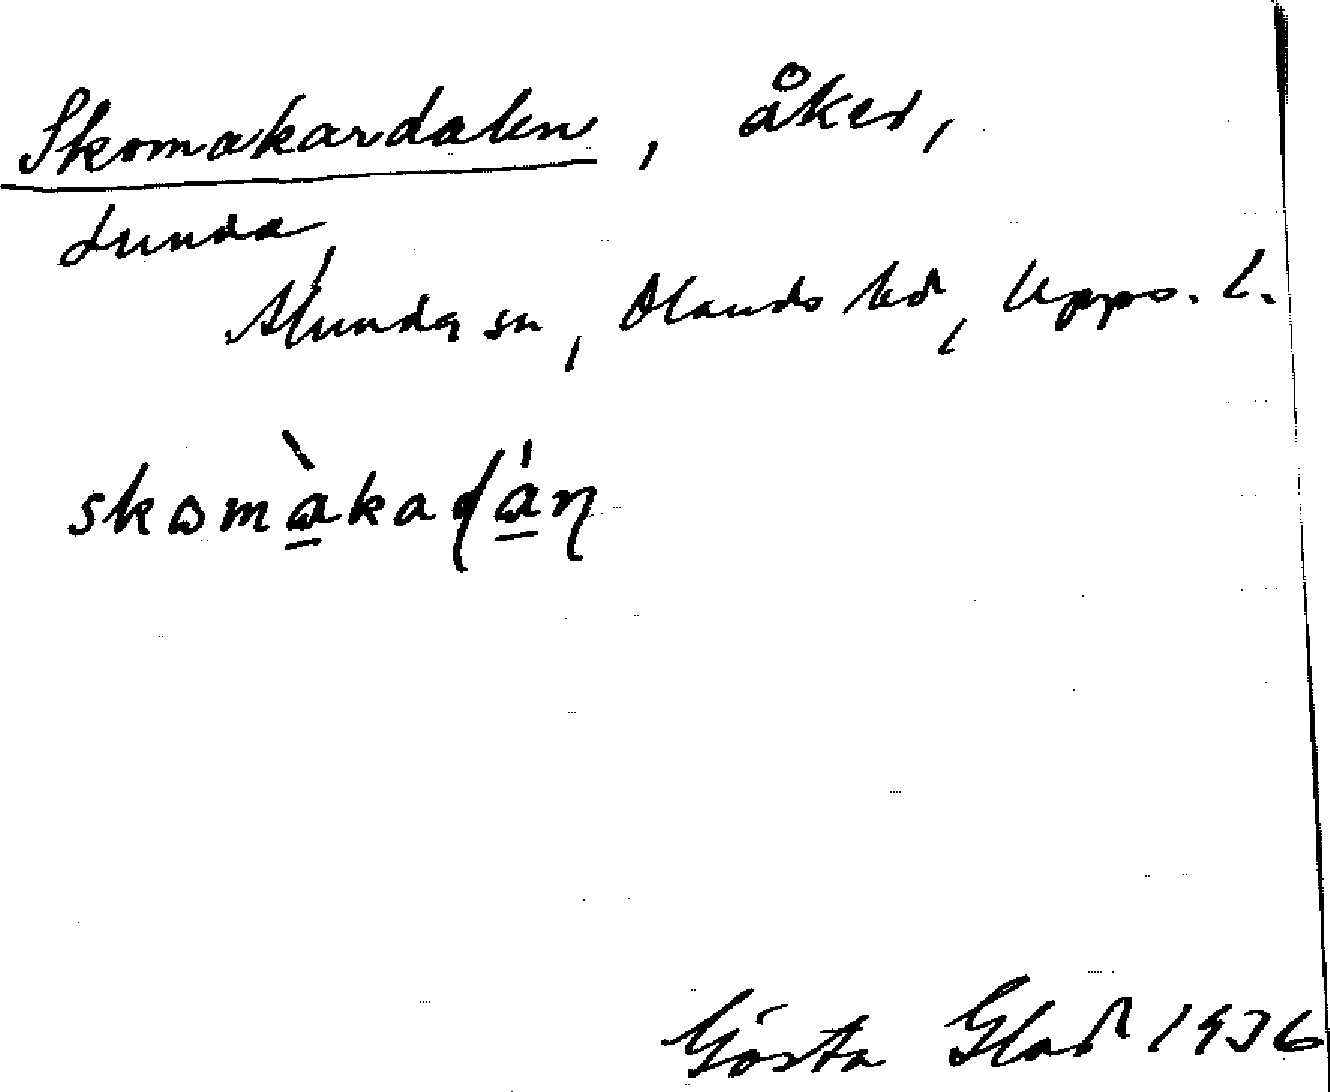 Skomakardalen, åker,
Lunda,
Alunda sn, Olands hd, Upps. l.
skomàkaɖán
Gösta Glad 1936